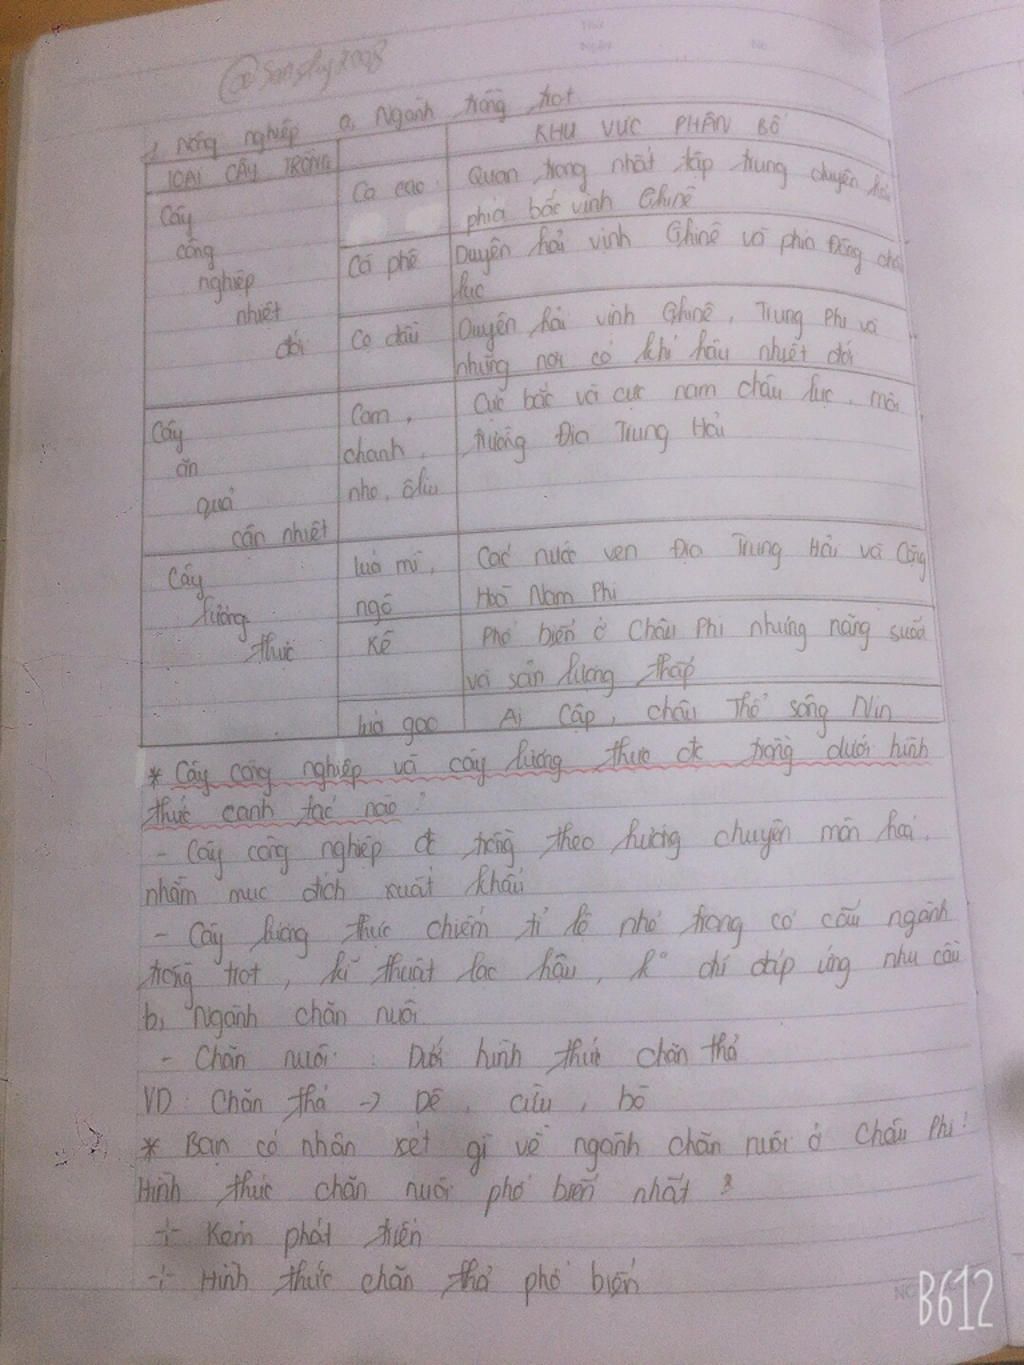 @Sangluy2008
1, Nông nghiệp a, Ngành trồng trọt
LOẠI CÂY TRỒNG
KHU VỰC PHÂN BỐ
Cây
công
nghiệp
nhiệt
đới
Ca cao
Quan trọng nhất tập trung duyên hải
phía bắc vịnh Ghinê
Cà phê
Duyên hải vịnh Ghinê và phía Đông châu
lục
Cọ dầu
Duyên hải vịnh Ghinê, Trung Phi và
những nơi có khí hậu nhiệt đới
Cây
ăn
quả
cận nhiệt
Cam,
chanh,
nho, ôliu
Cực bắc và cực nam châu lục, môi
trường Địa Trung Hải
Cây
lương
thực
lúa mì,
ngô
Các nước ven Địa Trung Hải và Cộng
Hoà Nam Phi
Kê
Phổ biến ở Châu Phi nhưng năng suất
và sản lượng thấp
lúa gạo
Ai Cập, châu Thổ sông Nin
* Cây công nghiệp và cây lương thực đc trồng dưới hình
thức canh tác nào?
- Cây công nghiệp đc trồng theo hướng chuyên môn hoá,
nhằm mục đích xuất khẩu
- Cây lương thực chiếm tỉ lệ nhỏ trong cơ cấu ngành
trồng trọt, kĩ thuật lạc hậu, k° chỉ đáp ứng nhu cầu
b, Ngành chăn nuôi
- Chăn nuôi: Dưới hình thức chăn thả
VD: Chăn thả -> Dê, cừu, bò
* Bạn có nhận xét gì về ngành chăn nuôi ở Châu Phi?
Hình thức chăn nuôi phổ biến nhất?
-:- Kém phát triển
-:- Hình thức chăn thả phổ biến
B612